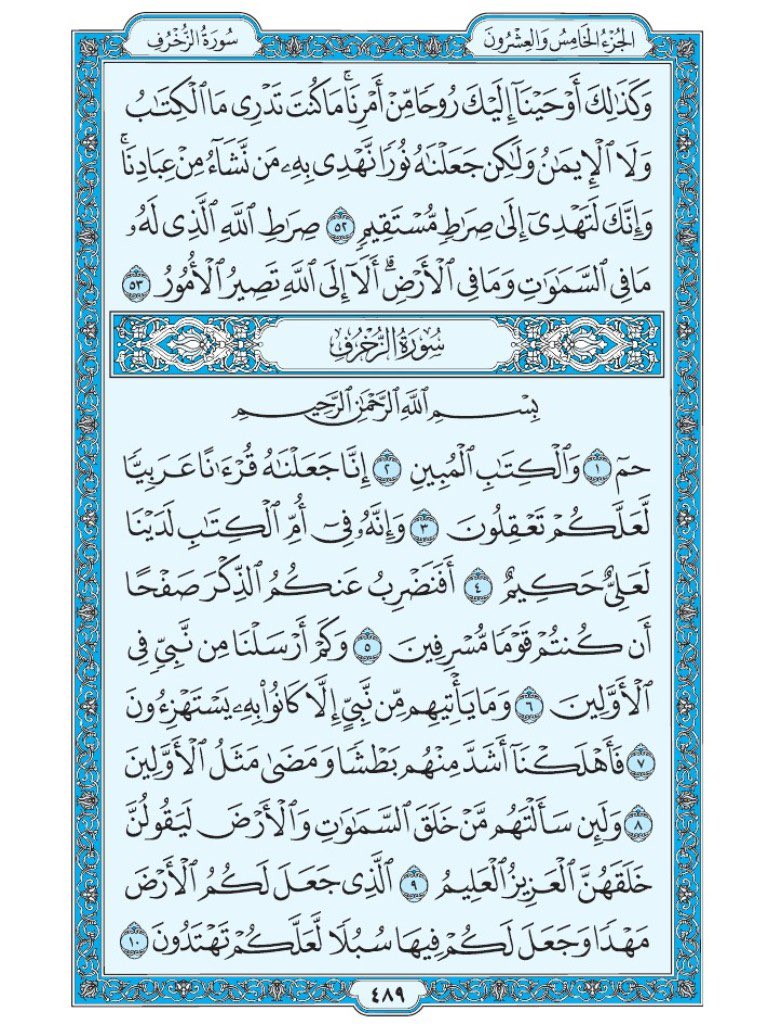 الجُزْءُ الخَامِسُ وَالعِشْرُونَ
سُورَةُ الزُّخْرُفِ
وَكَذَٰلِكَ أَوْحَيْنَآ إِلَيْكَ رُوحًا مِّنْ أَمْرِنَاۚ مَا كُنتَ تَدْرِى مَا ٱلْكِتَـٰبُ
وَلَا ٱلْإِيمَـٰنُ وَلَـٰكِن جَعَلْنَـٰهُ نُورًا نَّهْدِى بِهِۦ مَن نَّشَآءُ مِنْ عِبَادِنَاۚ
وَإِنَّكَ لَتَهْدِىٓ إِلَىٰ صِرَٰطٍ مُّسْتَقِيمٍ ٥٢ صِرَٰطِ ٱللَّهِ ٱلَّذِى لَهُۥ
مَا فِى ٱلسَّمَـٰوَٰتِ وَمَا فِى ٱلْأَرْضِۗ أَلَآ إِلَى ٱللَّهِ تَصِيرُ ٱلْأُمُورُ ٥٣
سُورَةُ الزُّخْرُفِ
بِسْمِ ٱللَّهِ ٱلرَّحْمَـٰنِ ٱلرَّحِيمِ
حمٓ ١ وَٱلْكِتَـٰبِ ٱلْمُبِينِ ٢ إِنَّا جَعَلْنَـٰهُ قُرْءَٰنًا عَرَبِيًّا
لَّعَلَّكُمْ تَعْقِلُونَ ٣ وَإِنَّهُۥ فِىٓ أُمِّ ٱلْكِتَـٰبِ لَدَيْنَا
لَعَلِىٌّ حَكِيمٌ ٤ أَفَنَضْرِبُ عَنكُمُ ٱلذِّكْرَ صَفْحًا
أَن كُنتُمْ قَوْمًا مُّسْرِفِينَ ٥ وَكَمْ أَرْسَلْنَا مِن نَّبِىٍّ فِى
ٱلْأَوَّلِينَ ٦ وَمَا يَأْتِيهِم مِّن نَّبِىٍّ إِلَّا كَانُوا۟ بِهِۦ يَسْتَهْزِءُونَ
٧ فَأَهْلَكْنَآ أَشَدَّ مِنْهُم بَطْشًا وَمَضَىٰ مَثَلُ ٱلْأَوَّلِينَ
٨ وَلَئِن سَأَلْتَهُم مَّنْ خَلَقَ ٱلسَّمَـٰوَٰتِ وَٱلْأَرْضَ لَيَقُولُنَّ
خَلَقَهُنَّ ٱلْعَزِيزُ ٱلْعَلِيمُ ٩ ٱلَّذِى جَعَلَ لَكُمُ ٱلْأَرْضَ
مَهْدًا وَجَعَلَ لَكُمْ فِيهَا سُبُلًا لَّعَلَّكُمْ تَهْتَدُونَ ١٠
٤٨٩